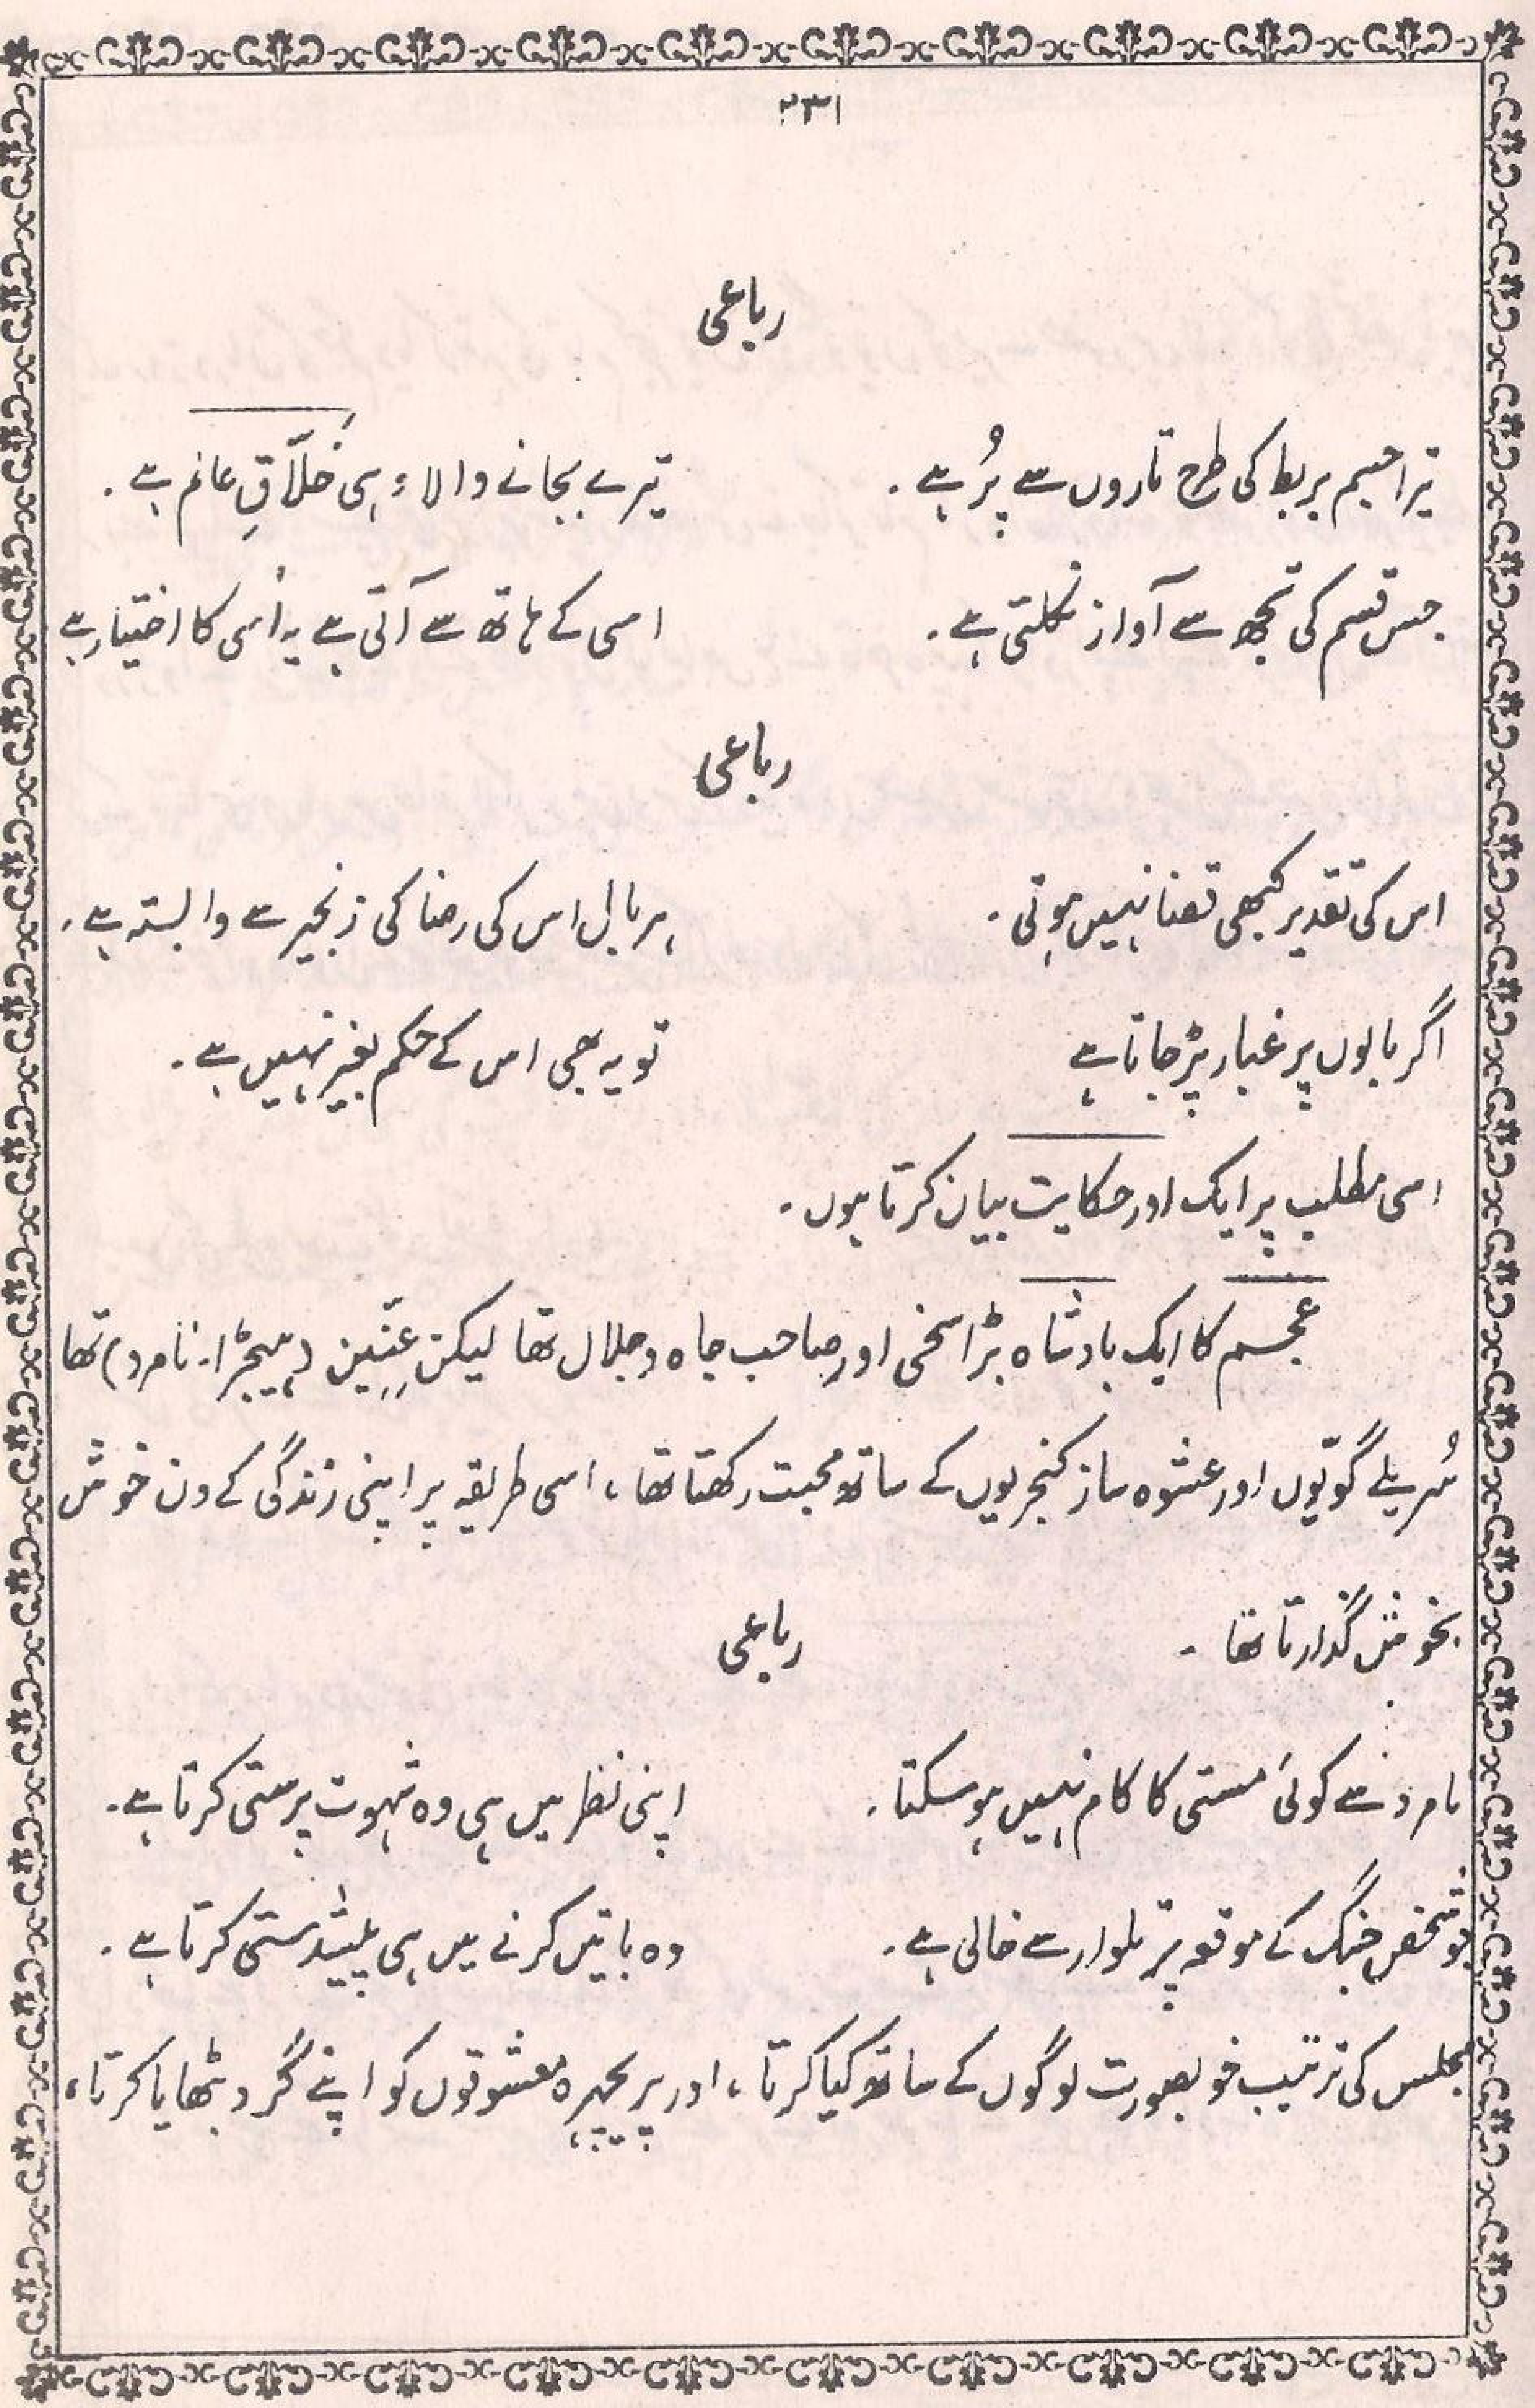 ۲۳۱
رباعی
تیرا جسم بربط کی طرح تاروں سے پُر ہے ۔ تیرے بجانے والا ء ہی خلّاقِ عالم ہے ۔
جس قسم کی تجھ سے آواز نکلتی ہے ۔ اسی کے ہاتھ سے آتی ہے یہ اُسی کا اختیار ہے
رباعی
اس کی تقدیر کبھی قضا نہیں ہوتی ۔ ہر بال اس کی رضا کی زنجیر سے وابستہ ہے ۔
اگر بالوں پر غبار پڑ جاتا ہے تو یہ بھی اس کے حکم بغیر نہیں ہے ۔
اسی مطلب پر ایک اور حکایت بیان کرتا ہوں ۔
عجم کا ایک بادشاہ بڑا سخی اور صاحب جاہ و جلال تھا لیکن عِنِّین (ہیجڑا ۔ نامرد) تھا
سُریلے گویّوں اور عشوہ ساز کنجریوں کے ساتھ محبت رکھتا تھا ، اسی طریقہ پر اپنی زندگی کے دن خوش
بخوش گذارتا تھا ۔ رباعی
نامرد سے کوئی مستی کا کام نہیں ہو سکتا ۔ اپنی نظر میں ہی وہ شہوت پرستی کرتا ہے ۔
جو شخص جنگ کے موقعہ پر تلوار سے خالی ہے ۔ وہ باتیں کرنے میں ہی پیشدستی کرتا ہے ۔
مجلس کی ترتیب خوبصورت لوگوں کے ساتھ کیا کرتا ، اور پریچہرہ معشوقوں کو اپنے گرد بٹھایا کرتا ،